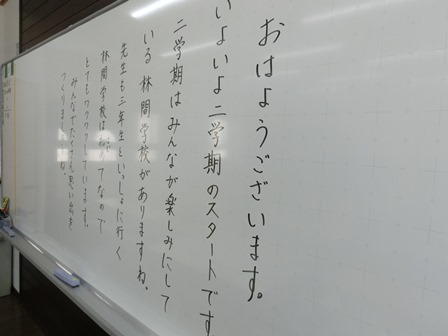 おはようございます。
いよいよ二学期のスタートです
二学期はみんなが楽しみにして
いる林間学校がありますね。
先生も二年生といっしょに行く
林間学校ははじめてなので
とてもワクワクしています。
みんなでたくさん思い出を
つくりましょうね。